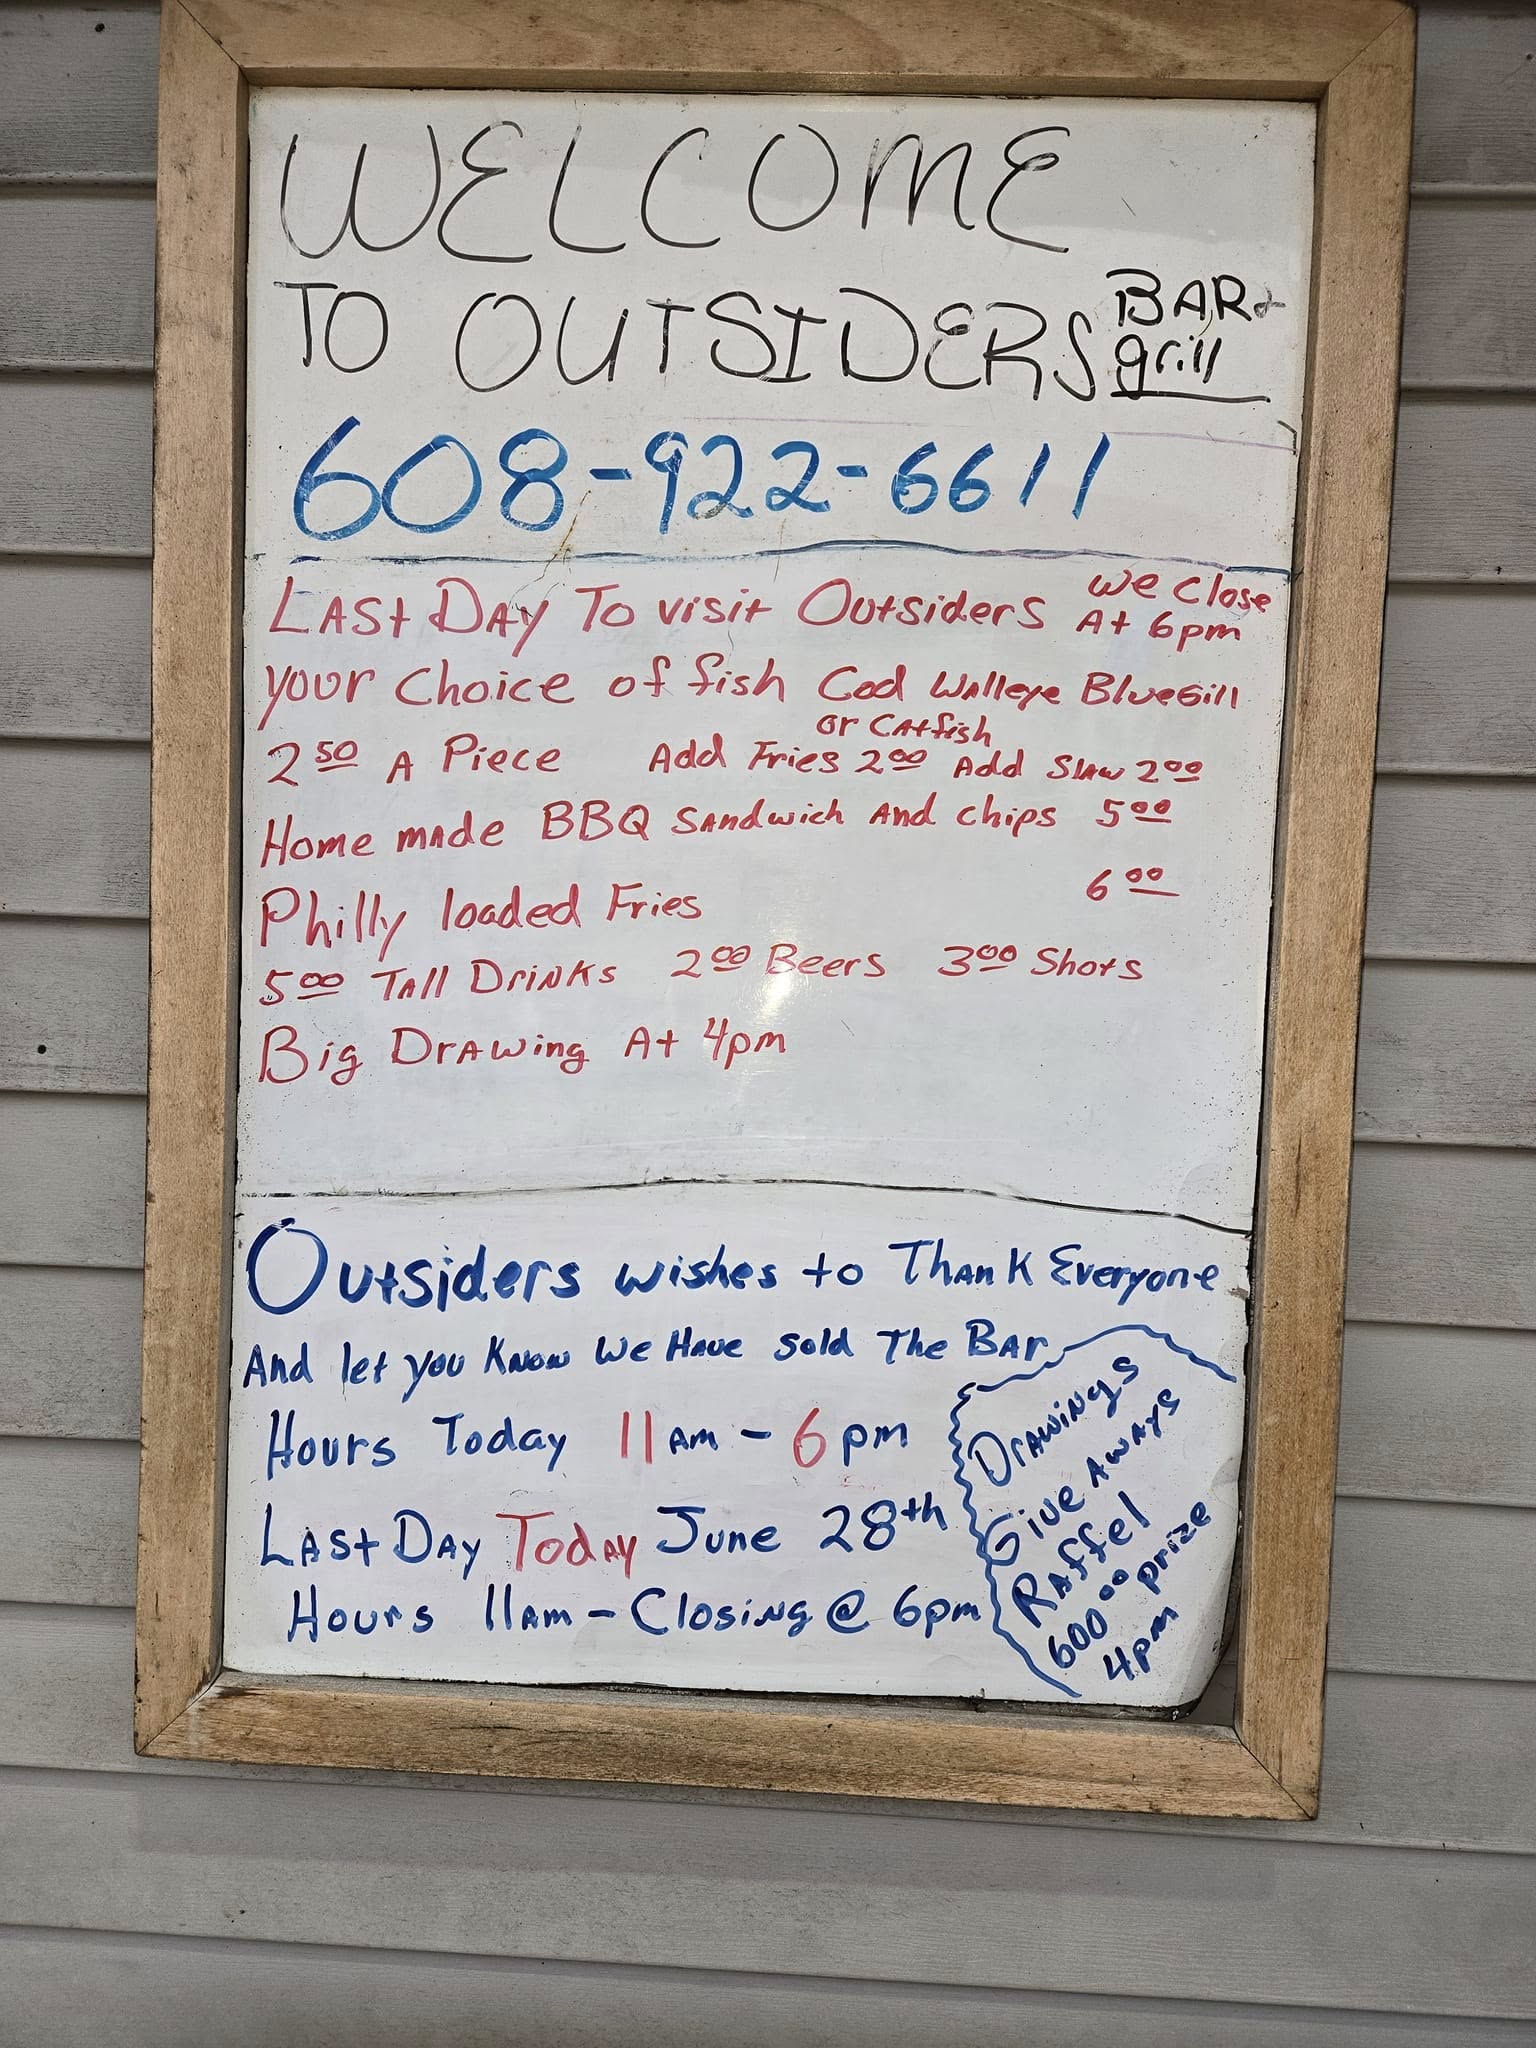 WELCOME
TO OUTSIDERS BAR +
grill
608-922-6611
LAST DAY TO visit Outsiders we close
At 6pm
your choice of fish Cod Walleye Bluegill
or Catfish
2 50 A Piece Add Fries 2 00 Add Slaw 2 00
Home made BBQ Sandwich And chips 5 00
Philly loaded Fries 6 00
5 00 Tall Drinks 2 00 Beers 3 00 Shots
Big Drawing At 4pm
Outsiders wishes to Thank Everyone
And let you Know We Have sold The Bar
Hours Today 11 Am - 6 pm
Last Day Today June 28th
Hours 11am - Closing @ 6pm
Drawings
Give Aways
Raffel
600 00 prize
4pm